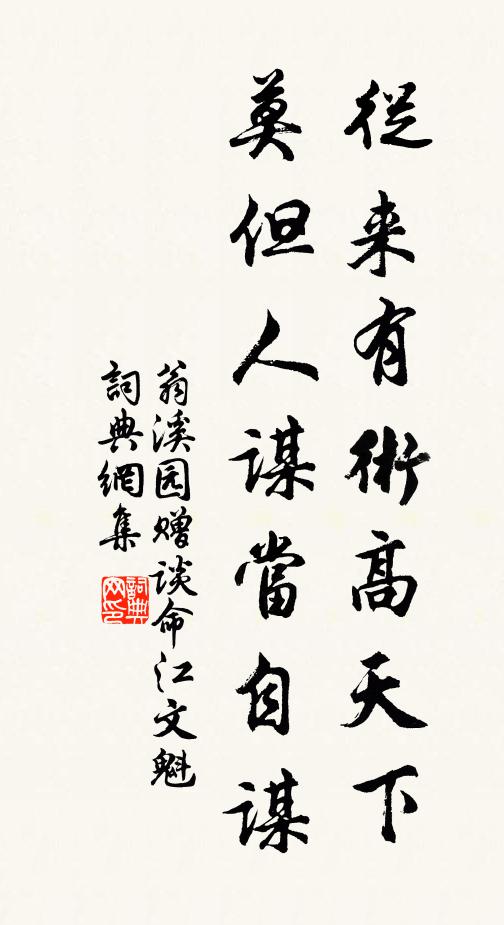 從来有術高天下
莫但人谋當自谋
翁溪园赠谈命江文魁
詞典網集
詞典网印